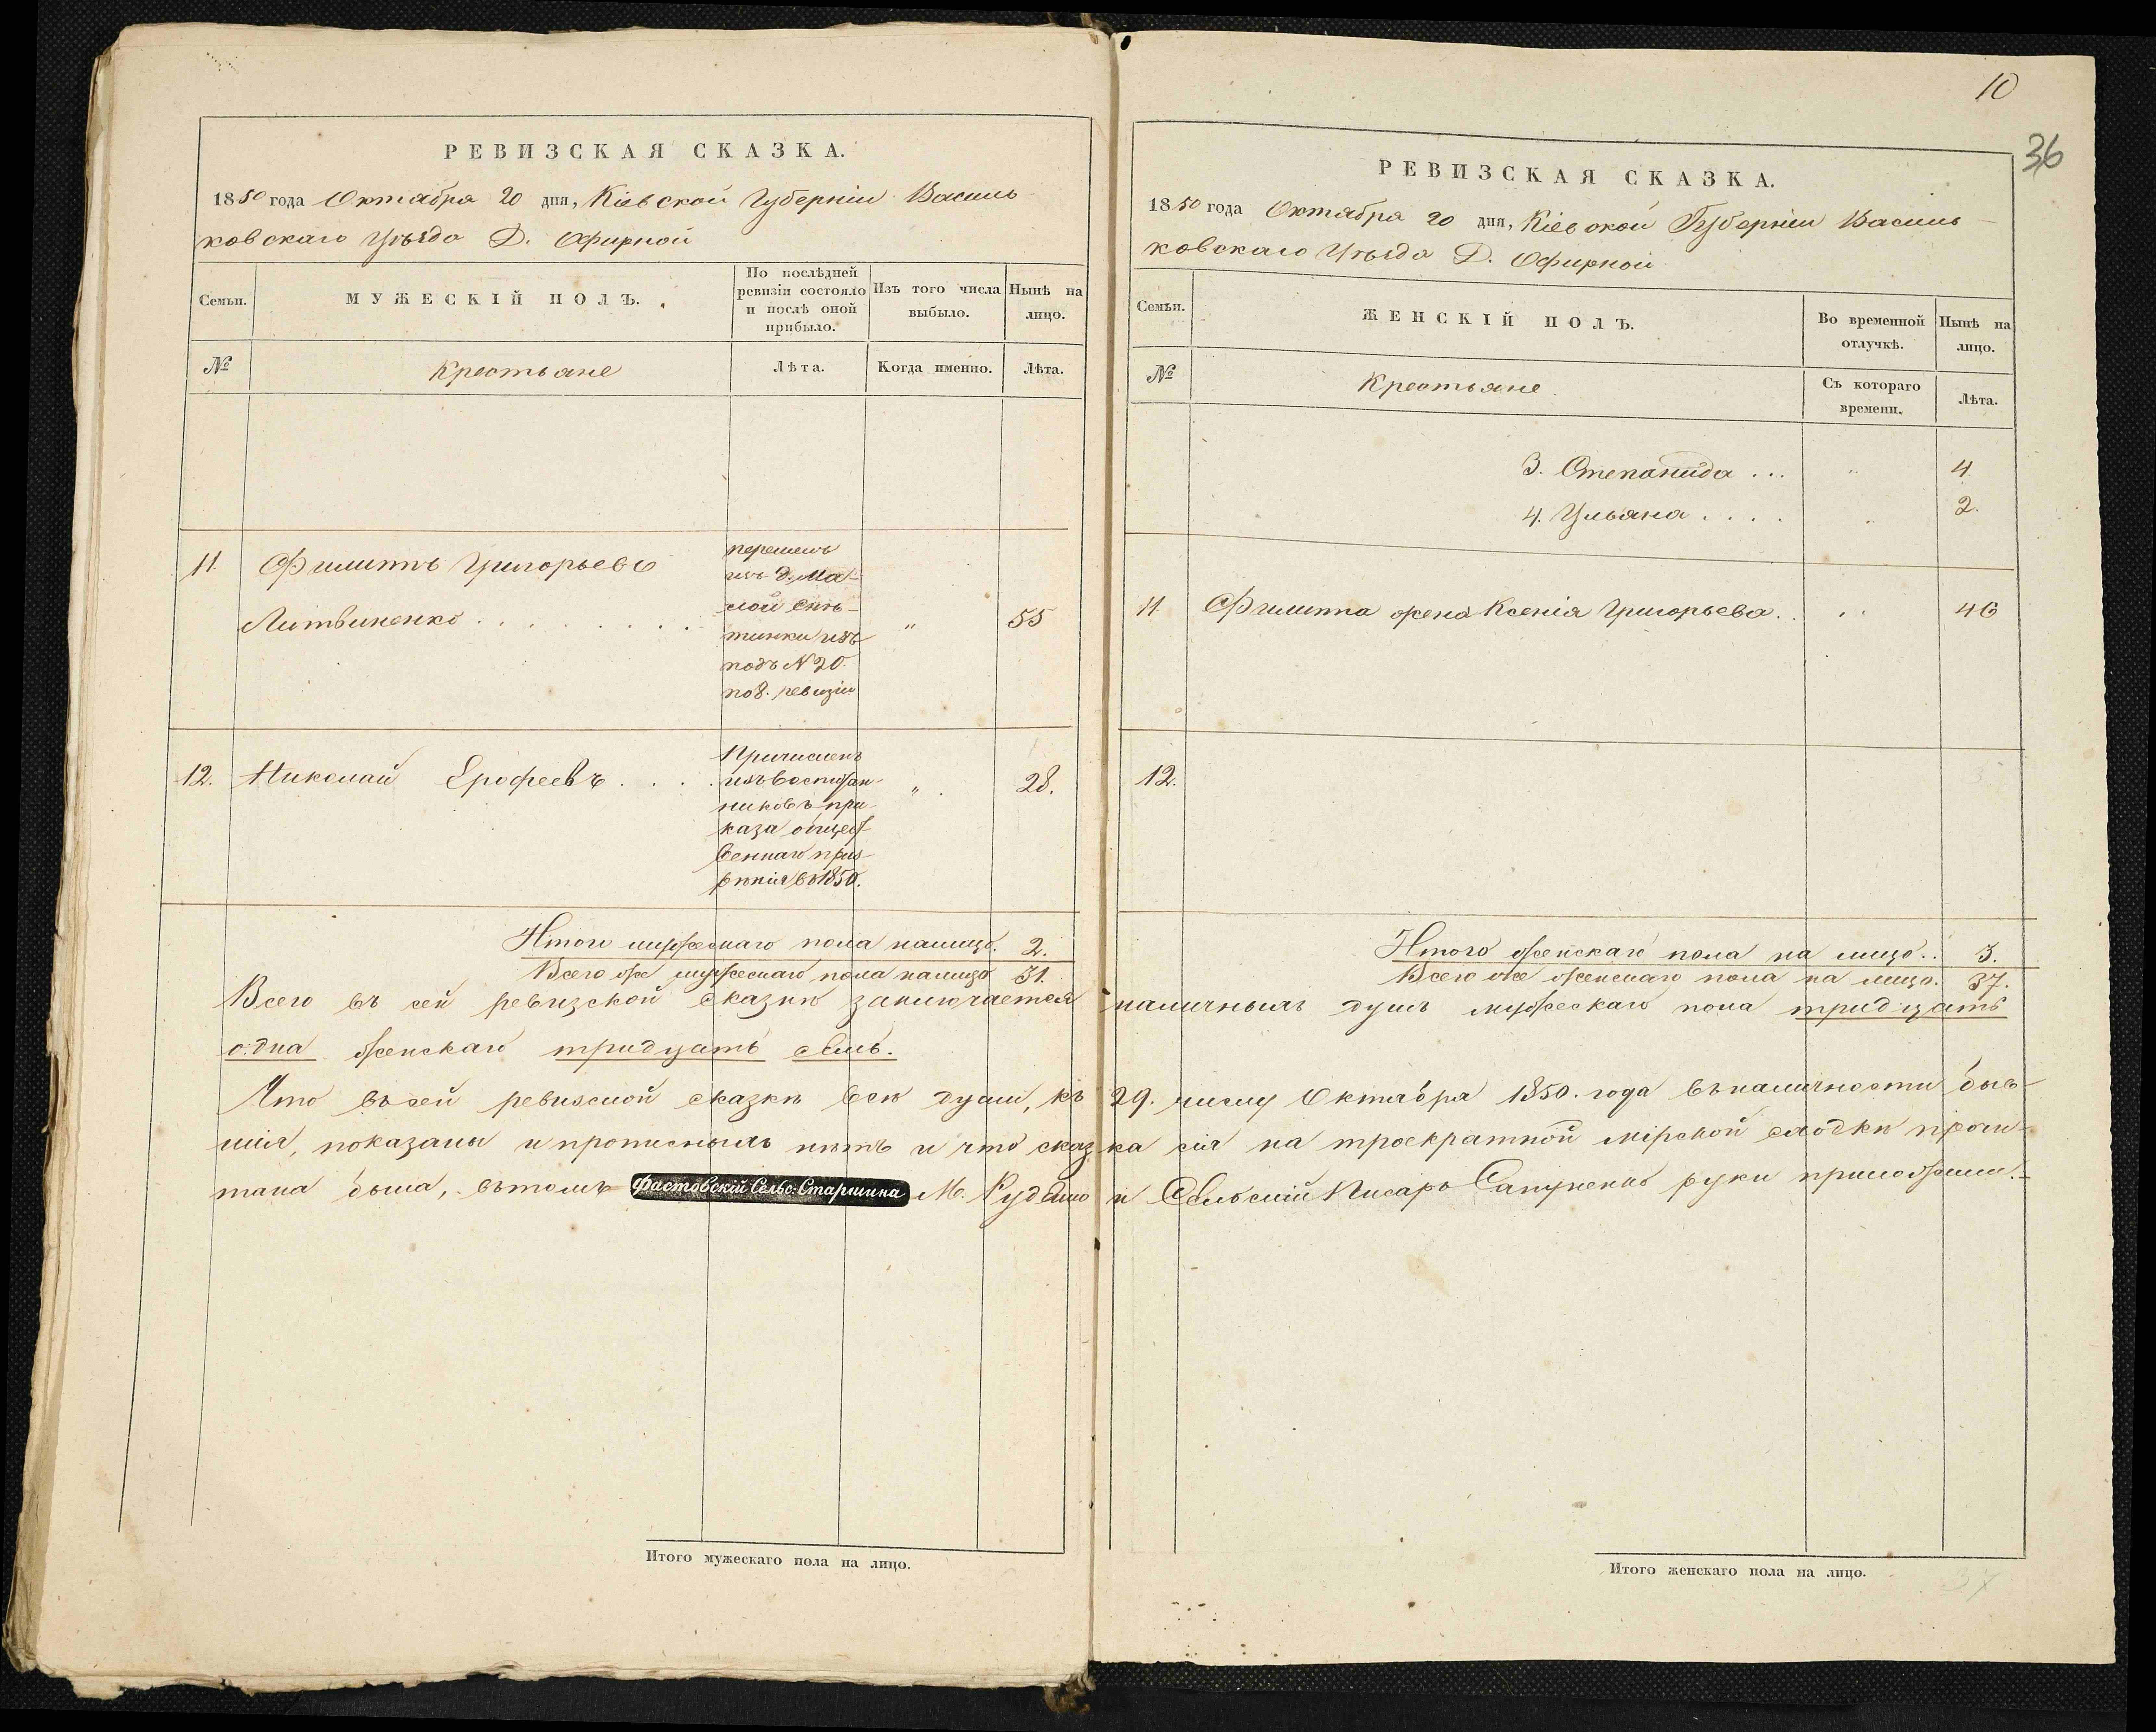 РЕВИЗСКАЯ СКАЗКА.
1850 года Октября 20 дня, Кіевской Губерніи Василь-
ковскаго Уѣзда Д. Офирной
Семьи.
МУЖЕСКІЙ ПОЛЪ.
По послѣдней ревизіи состояло и послѣ оной прибыло.
Изъ того числа выбыло.
Нынѣ на лицо.
№
Крестьяне
Лѣта.
Когда именно.
Лѣта.
11. Филиппъ Григорьевъ
Литвиненко . . . . . . . . " 55
перешелъ
изъ д. Ма-
лой Снѣ-
тинки изъ
подъ N 20.
по 8. ревизіи
12. Николай Ерофеевъ . . . . " . 28.
Причисленъ
изъ воспитан-
никовъ при-
каза общест-
веннаго приз-
рѣнія въ 1850.
Итого мужескаго пола налицо. 2.
Всего же мужескаго пола налицо 31.
10
36
РЕВИЗСКАЯ СКАЗКА.
1850 года Октября 20 дня, Кіевской Губерніи Василь-
ковскаго Уѣзда Д. Офирной
Семьи.
ЖЕНСКІЙ ПОЛЪ.
Во временной отлучкѣ.
Нынѣ на лицо.
№
Крестьяне
Съ котораго времени.
Лѣта.
3. Степанида . . . " 4.
4. Ульяна . . . . " 2.
11. Филиппа жена Ксенія Григорьева . . " 46
12.
Итого женскаго пола на лицо . . 3.
Всего же женскаго пола на лицо. 37.
Всего въ сей ревизской сказкѣ заключается наличныхъ душъ мужескаго пола тридцать
одна женскаго тридцать семь.
Что въ сей ревизской сказкѣ всѣ души, къ 29. числу Октября 1850. года въ наличности быв-
шія, показаны и прописныхъ нѣтъ и что сказка сія на троекратной мірской сходкѣ прочи-
тана была, въ томъ Фастовскій Сельс: Старшина М. и Сельскій Писарь руки приложили.
Итого мужескаго пола на лицо.
Итого женскаго пола на лицо.
37